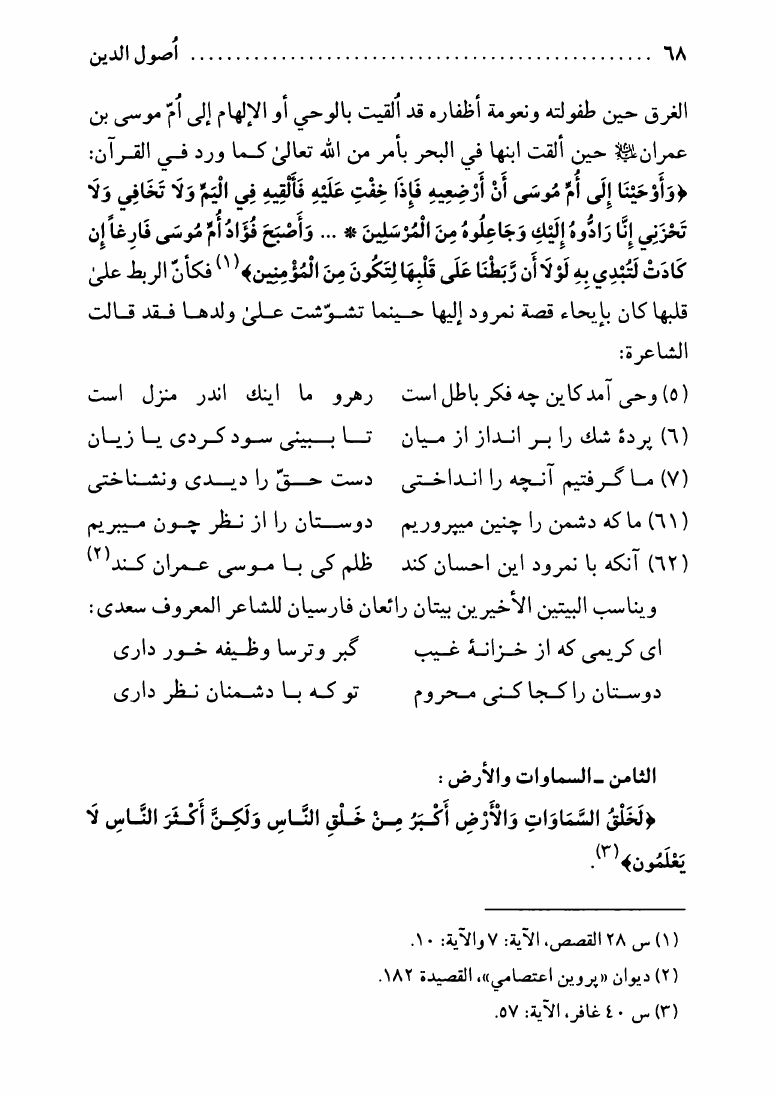 ٦٨ .................................................... أُصول الدين
الغرق حين طفولته ونعومة أظفاره قد أُلقيت بالوحي أو الإلهام إلى أُمّ موسى بن
عمران حين ألقت ابنها في البحر بأمر من الله تعالىٰ كـما ورد فـي القـرآن:
﴿وَأَوْحَيْنَا إِلَى أُمِّ مُوسَى أَنْ أَرْضِعِيهِ فَإِذَا خِفْتِ عَلَيْهِ فَأَلْقِيهِ فِي الْيَمِّ وَلَا تَخَافِي وَلَا
تَحْزَنِي إِنَّا رَادُّوهُ إِلَيْكِ وَجَاعِلُوهُ مِنَ الْمُرْسَلِينَ * ... وَأَصْبَحَ فُؤَادُ أُمِّ مُوسَى فَارِغاً إِن
كَادَتْ لَتُبْدِي بِهِ لَوْلَا أَن رَّبَطْنَا عَلَى قَلْبِهَا لِتَكُونَ مِنَ الْمُؤْمِنِين﴾(١) فكأنّ الربط علىٰ
قلبها كان بإيحاء قصة نمرود إليها حـينما تشـوّشت عـلىٰ ولدهـا فـقد قـالت
الشاعرة:
(٥) وحی آمد کاین چه فکر باطل است رهرو ما اینك اندر منزل است
(٦) پردهٔ شك را بـر انـداز از مـیان تـا بـبینی سـود کـردی یـا زیـان
(٧) مـا گـرفتیم آنـچه را انـداخـتی دست حـقّ را دیـدی ونشـناختی
(٦١) ما که دشمن را چنین میپروریم دوسـتان را از نـظر چـون مـیبریم
(٦٢) آنکه با نمرود این احسان کند ظلم کی بـا مـوسی عـمران کـند(٢)
ويناسب البيتين الأخيرين بيتان رائعان فارسيان للشاعر المعروف سعدى:
ای کریمی که از خـزانـهٔ غـیب گبر وترسا وظـیفه خـور داری
دوسـتان را کـجا کـنی مـحروم تو کـه بـا دشـمنان نـظر داری
الثامن ـ السماوات والأرض :
﴿لَخَلْقُ السَّمَاوَاتِ وَالْأَرْضِ أَكْـبَرُ مِـنْ خَـلْقِ النَّـاسِ وَلَكِـنَّ أَكْـثَرَ النَّـاسِ لَا
يَعْلَمُون﴾(٣).
(١) س ٢٨ القصص، الآية: ٧ والآية: ١٠.
(٢) ديوان «پروين اعتصامي»، القصيدة ١٨٢.
(٣) س ٤٠ غافر، الآية: ٥٧.